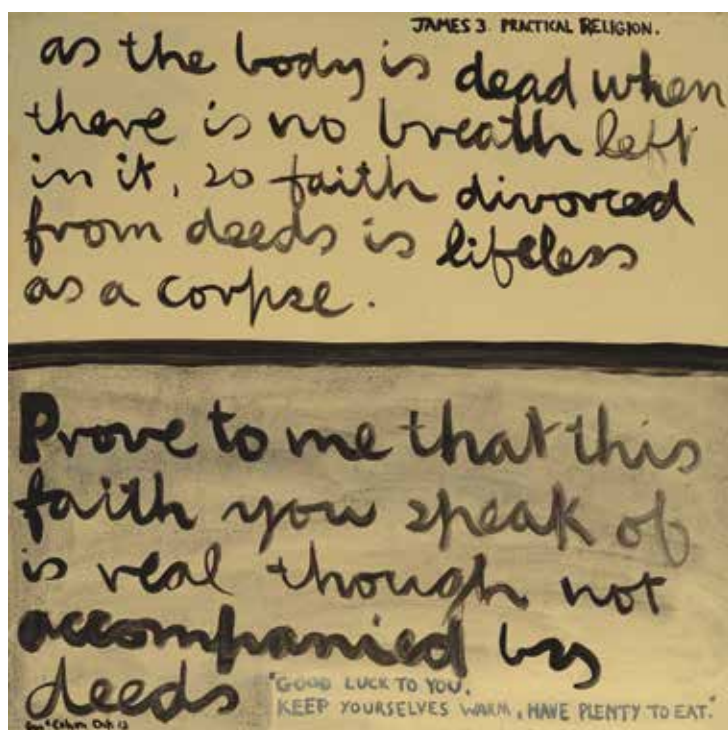 JAMES 3. PRACTICAL RELIGION.
as the body is dead when
there is no breath left
in it, so faith divorced
from deeds is lifeless
as a corpse.
Prove to me that this
faith you speak of
is real though not
accompanied by
deeds
"GOOD LUCK TO YOU,
KEEP YOURSELVES WARM, HAVE PLENTY TO EAT."